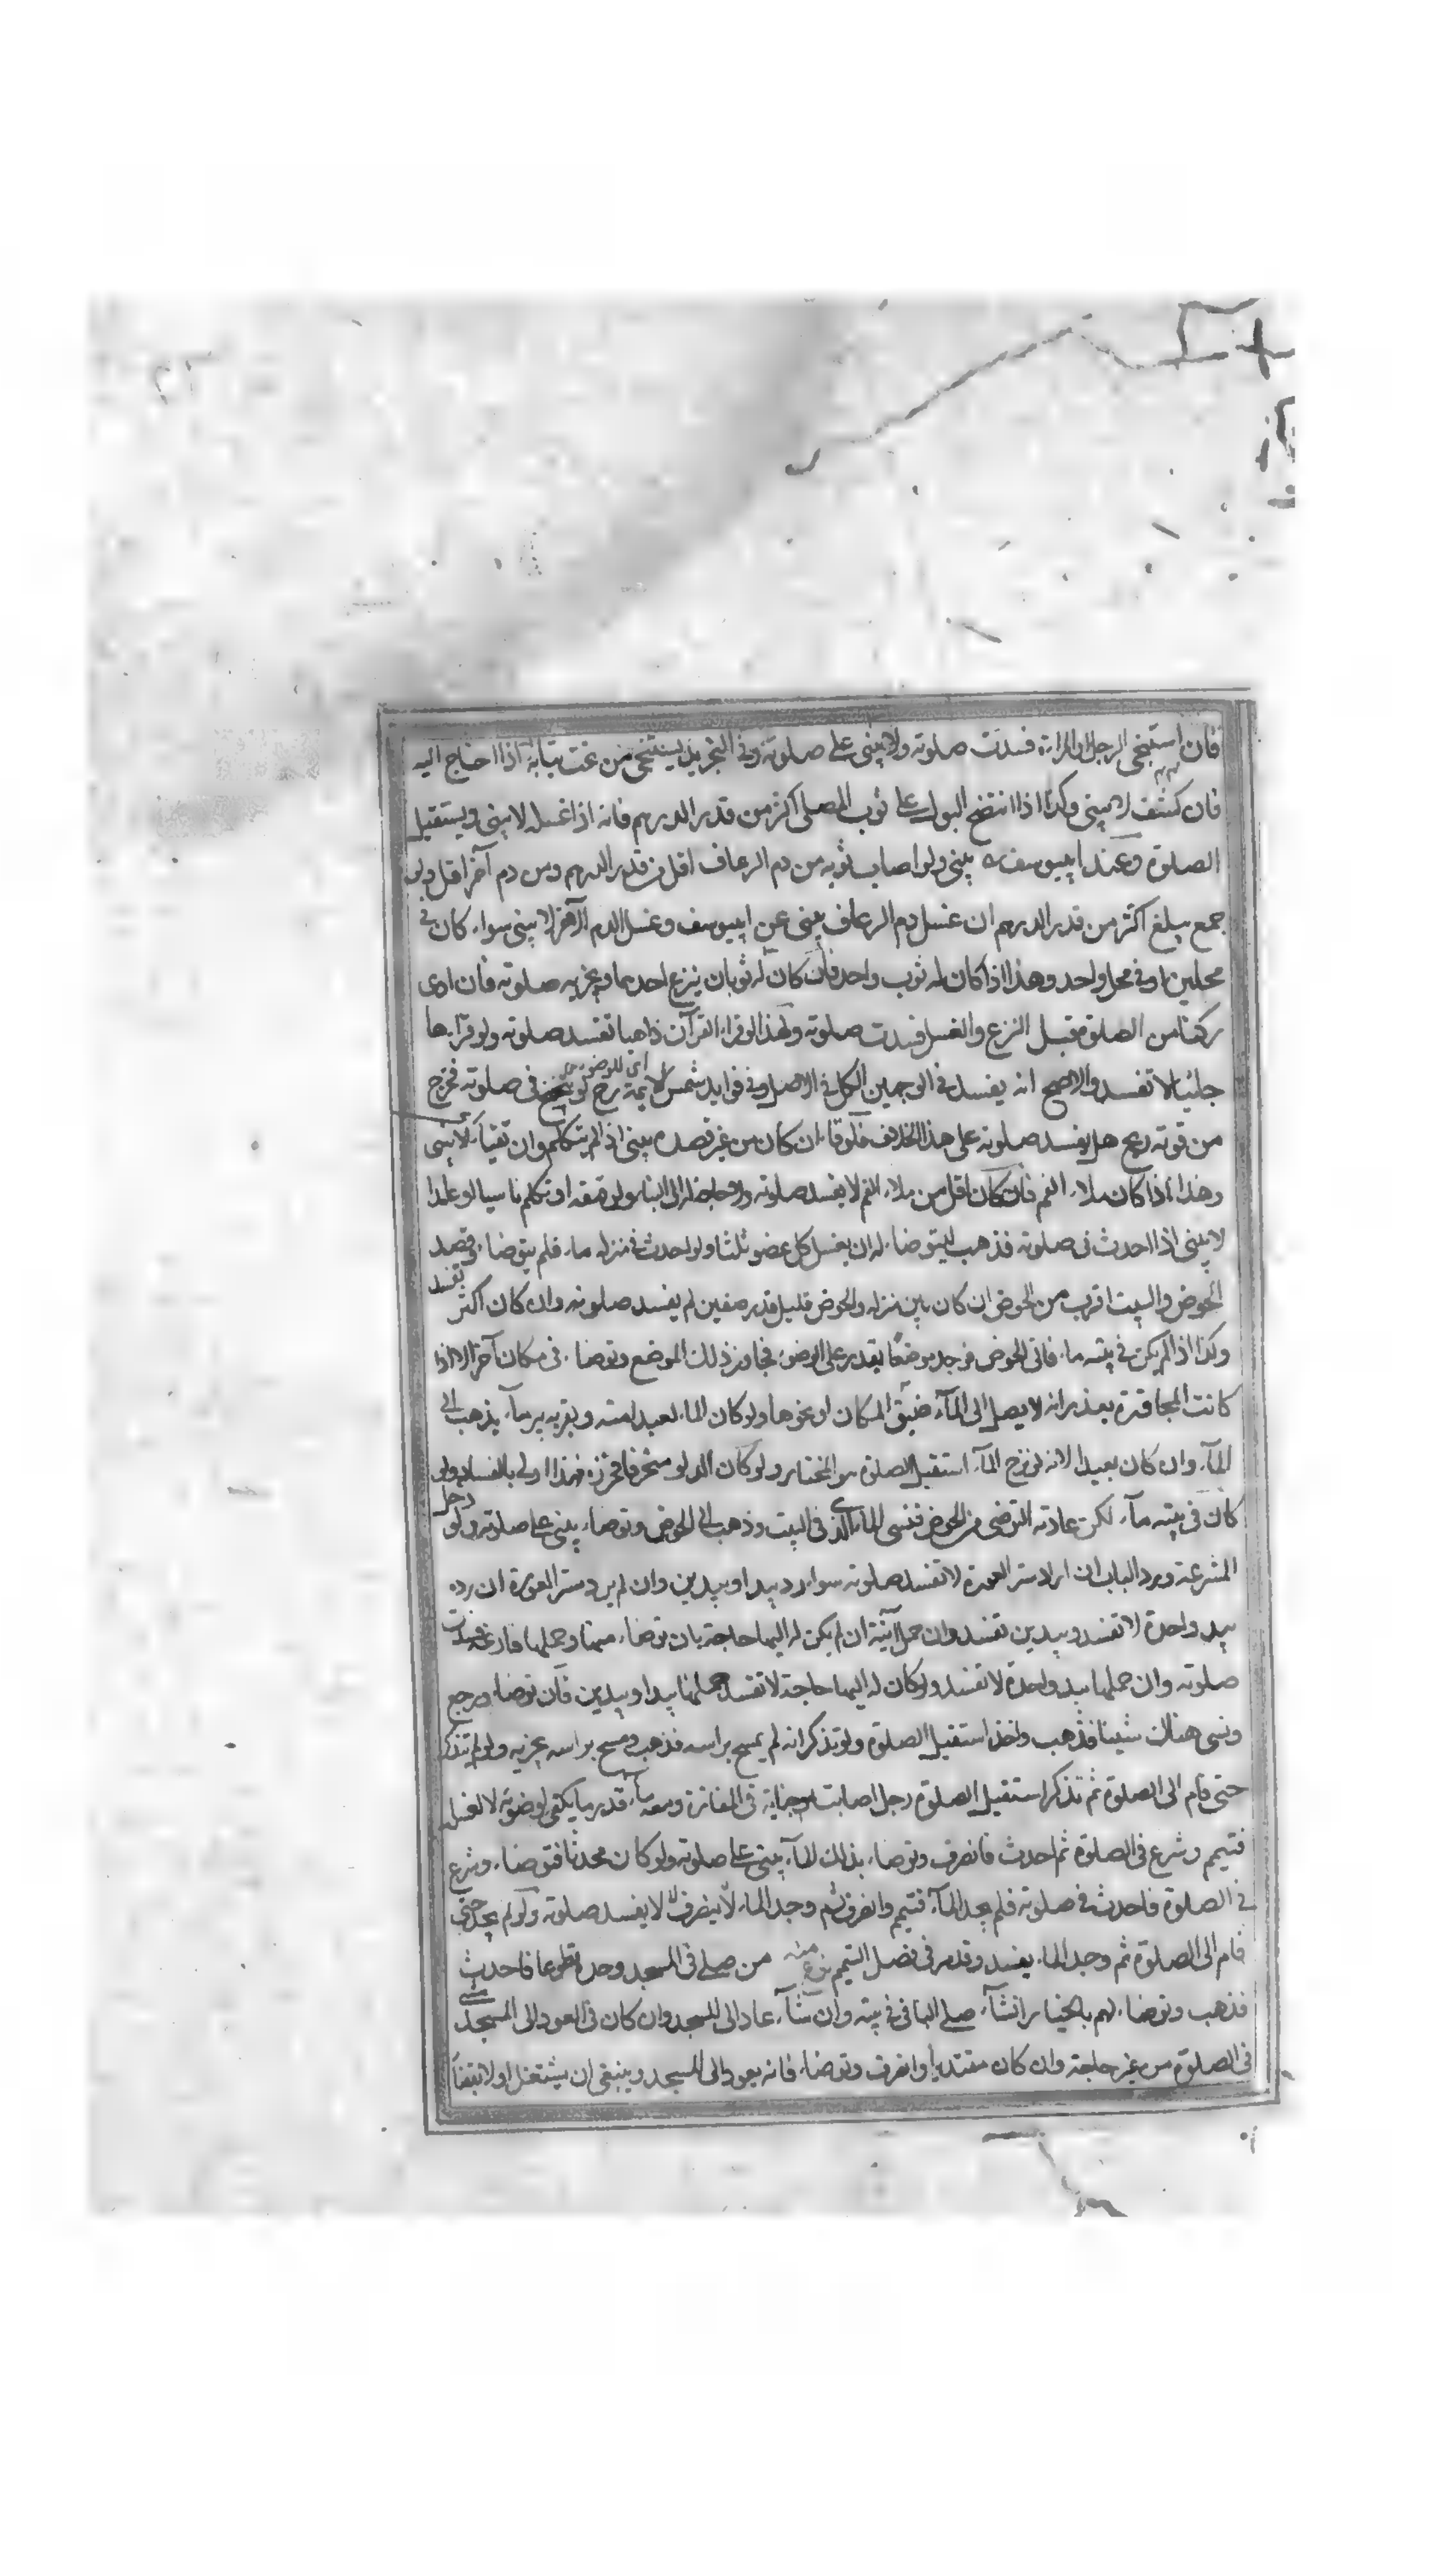 فان استنجى الرجل او المراة فسدت صلوته ولا يبنى على صلوته وفي التجريد يستنجى من تحت ثيابه اذا احتاج اليه
فان كشف لا يبنى وكذا اذا انتضح البول على ثوب المصلى اكثر من قدر الدرهم فانه اذا غسله لا يبنى ويستقبل
الصلوة وعند ابيوسف يبنى ولو اصاب ثوبه من دم الرعاف اقل من قدر الدرهم ومن دم آخر اقل ولو
جمع يبلغ اكثر من قدر الدرهم ان غسل دم الرعاف يبنى عن ابيوسف وغسل الدم الآخر لا يبنى سواء كان في
محلين او في محل واحد وهذا اذا كان له ثوب واحد فان كان له ثوبان ينزع احدهما ويجزيه صلوته فان ادى
ركنا من الصلوة قبل النزع والغسل فسدت صلوته ولهذا لو قراء القرآن ذاهبا تفسد صلوته ولو قراءها
جائيا لا تفسد والاصح انه يفسد في الوجهين الكل في الاصل وفي فوايد شمس الايمة رح لو تنحنح في صلوته فخرج
من قوته ريح هل يفسد صلوته على هذا الخلاف فلو قاء ان كان من غير قصده يبنى اذا لم يتكلم وان تقيأ لا يبنى
وهذا اذا كان ملاء الفم فان كان اقل من ملاء الفم لا يفسد صلوته ولا حاجة له الى البناء ولو قهقه او تكلم ناسيا او عامدا
لا يبنى اذا احدث في صلوته فذهب ليتوضا له ان يغسل كل عضو ثلثا ولو احدث في منزله ماء فلم يتوضا وقصد
الحوض والبيت اقرب من الحوض ان كان بين منزله والحوض قليل قدر صفين لم يفسد صلوته وان كان اكثر تفسد
وكذا اذا لم يكن في بيته ماء فاتى الحوض فوجد موضعا يقدر على الوضوء فجاوز ذلك الموضع وتوضا في مكان آخر الا اذا
كانت المجاوزة بعذر انه لا يصل الى المآء لضيق المكان او نحوها ولو كان الماء بعيدا منه وبقربه بير مآء يذهب الى
المآء وان كان بعيدا لانه لو نزح المآء استقبل الصلوة هو المختار ولو كان الدلو منخرقا فخرزه فهذا اولى بالفساد ولو
كان في بيته مآء لكن عادته التوضى من الحوض فنسى الماء الذي في البيت وذهب الى الحوض وتوضاء يبنى على صلوته ولو دخل
المشرعة ورد الباب ان اراد ستر العورة لا تفسد صلوته سواء رد بيد او بيدين وان لم يرد ستر العورة ان رده
بيد واحدة لا تفسد وبيدين تفسد وان حمل آنية ان لم يكن له اليها حاجة بان توضاء منها وحملها فارغة فسدت
صلوته وان حملها بيد واحدة لا تفسد ولو كان له اليها حاجة لا تفسد حملها بيد او بيدين فان توضا ورجع
ونسى هناك شيئا فذهب واخذ استقبل الصلوة ولو تذكر انه لم يمسح براسه فذهب ومسح براسه يجزيه ولو لم يتذكر
حتى قام الى الصلوة ثم تذكر استقبل الصلوة رجل اصابته جنابة في المفازة ومعه ماء قدر ما يكفى لوضوئه لا لغسله
فتيمم وشرع في الصلوة ثم احدث فانصرف وتوضاء بذلك المآء يبنى على صلوته ولو كان محدثا فتوضاء وشرع
في الصلوة فاحدث في صلوته فلم يجد المآء فتيمم وانصرف ثم وجد الماء لا ينصرف لا يفسد صلوته ولو لم يجد حتى
قام الى الصلوة ثم وجد الماء يفسد وقد مر في فصل التيمم نوع منه من صلى في المسجد وحده تطوعا فاحدث
فذهب وتوضاء لهم بالخيار ان شآء صلى الباقي في بيته وان شآء عاد الى المسجد وان كان في العود الى المسجد مشى
في الصلوة من غير حاجة وان كان مقتديا وانصرف وتوضاء فانه يعود الى المسجد وينبغى ان يشتغل اولا بقضاء